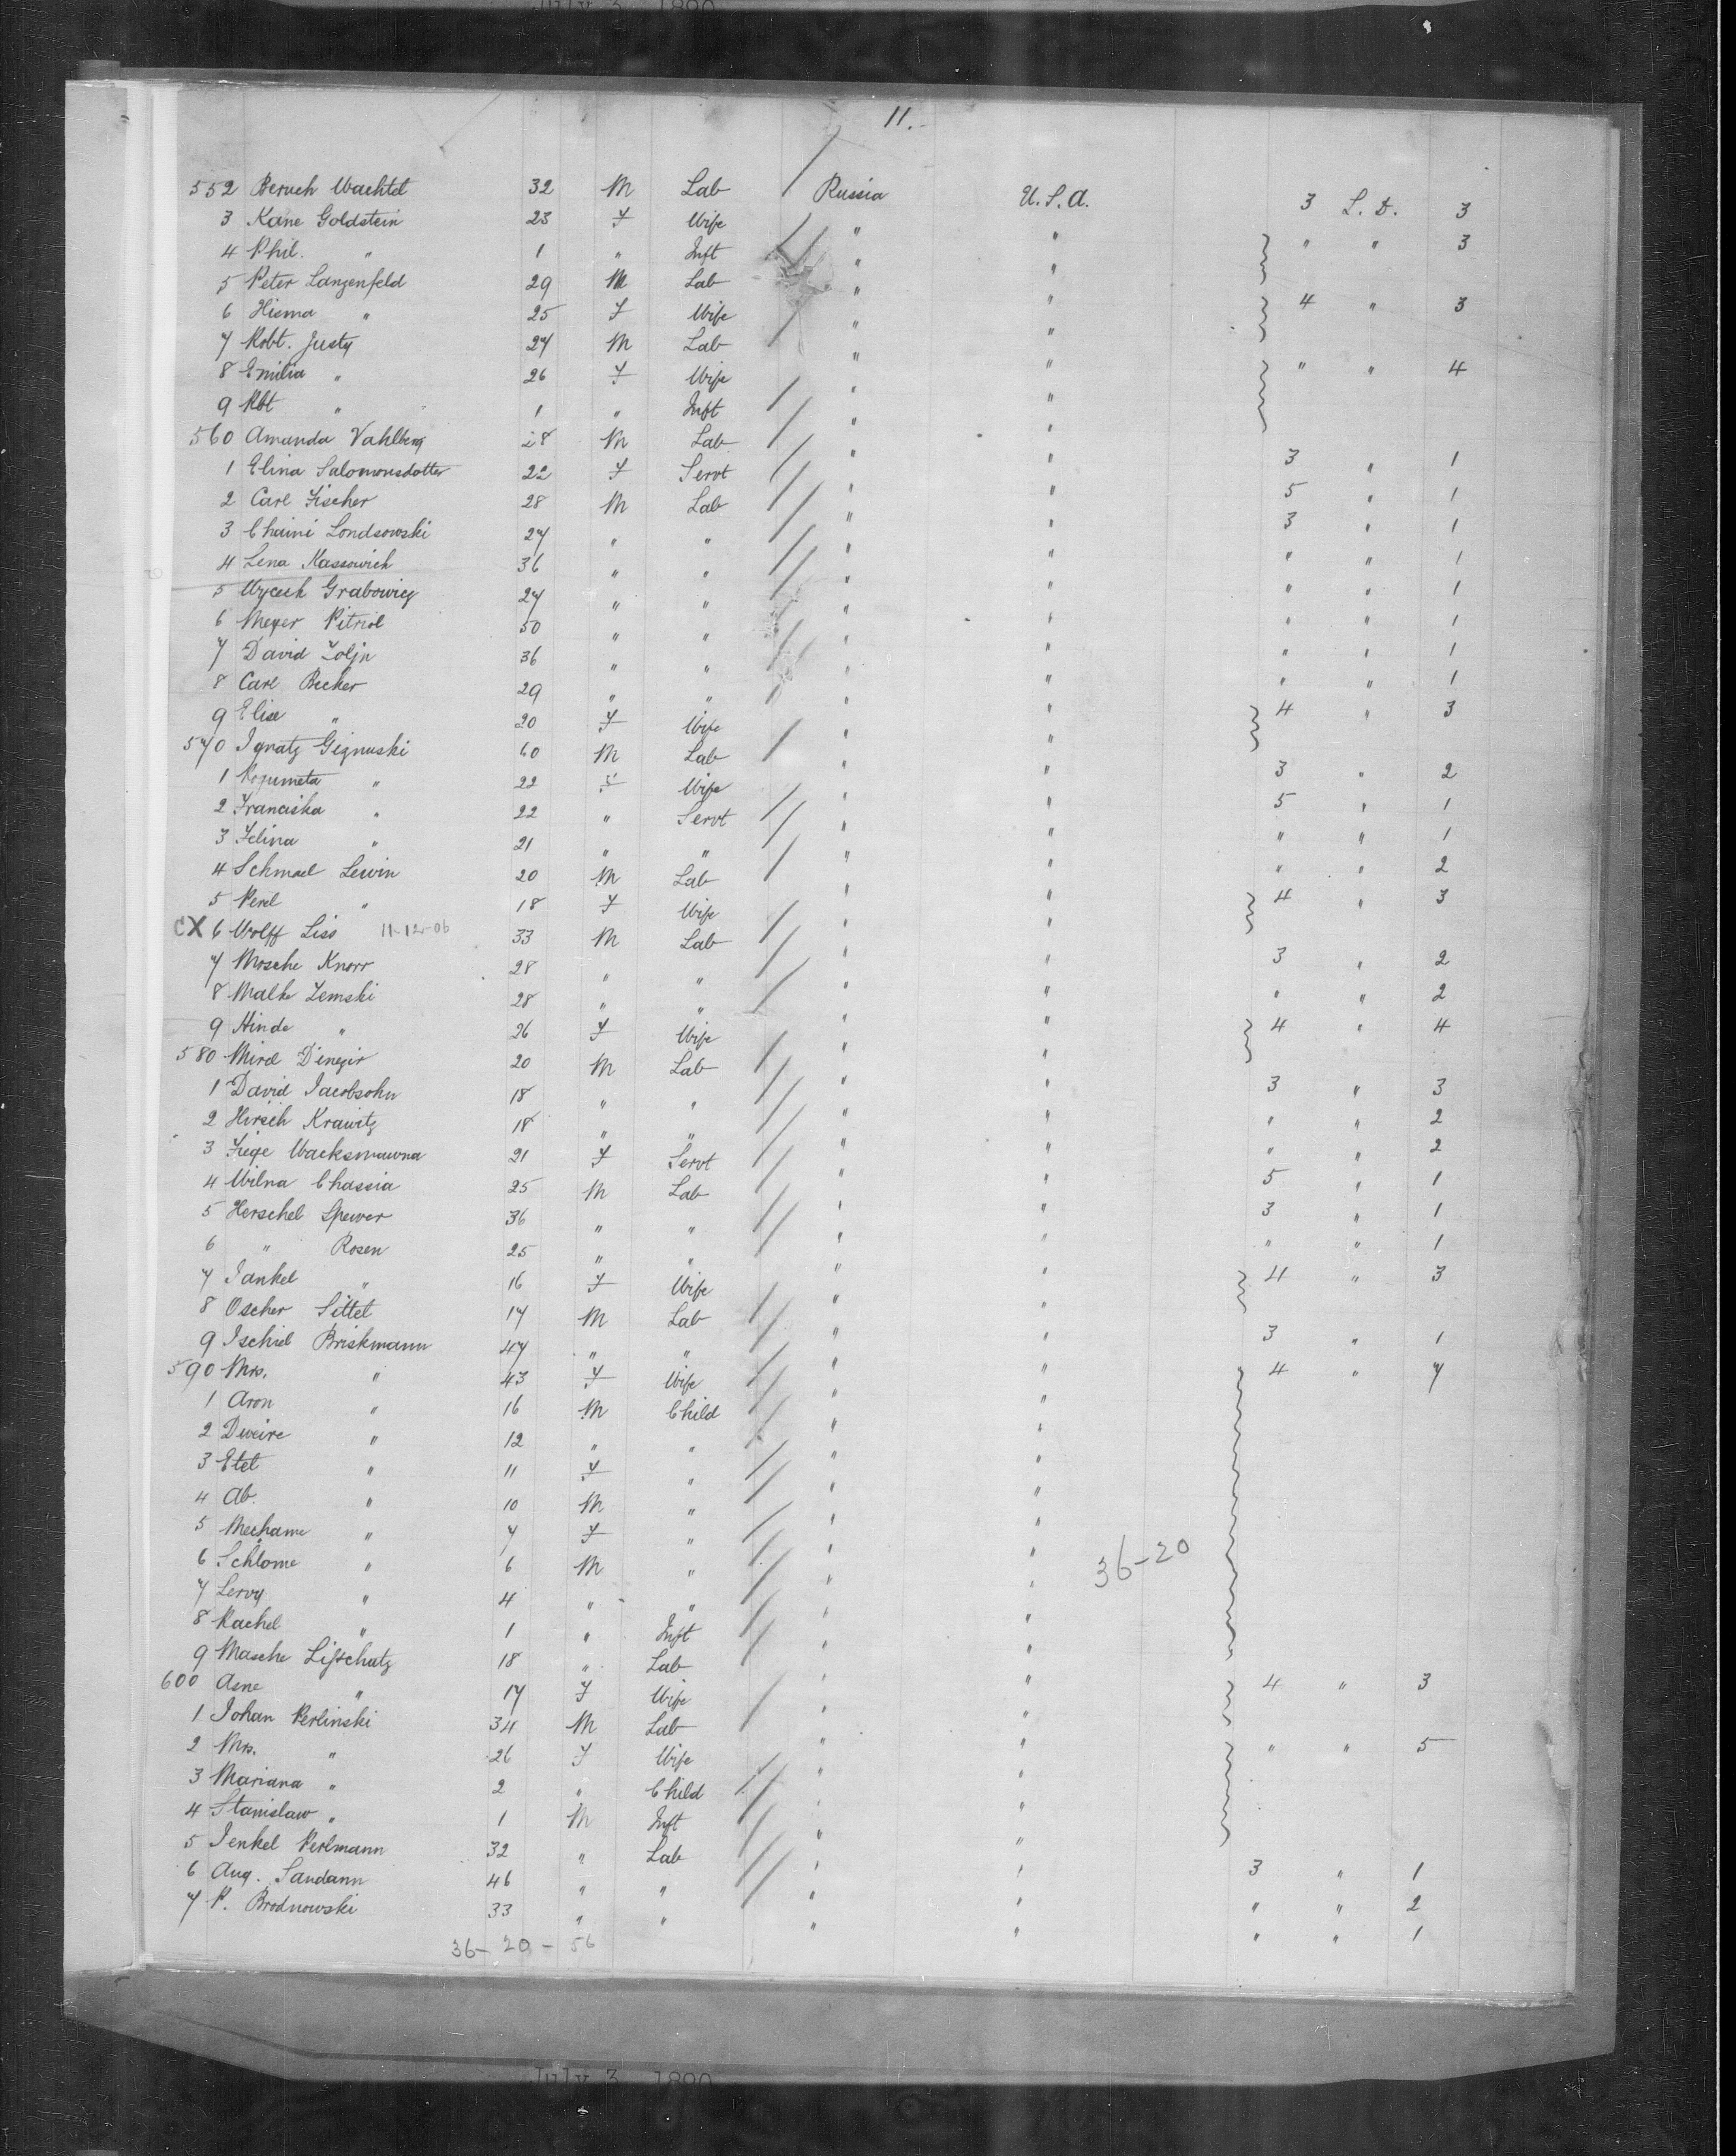 July 3, 1890
11.
552 Beruch Wachtel 32 M Lab Russia U.S.A. 3 L. D. 3
3 Kane Goldstein 23 F Wife " " " " 3
4 Phil. " 1 " Inft " "
5 Peter Langenfeld 29 M Lab " " 4 " 3
6 Hisma " 25 F Wife " "
7 Robt. Justy 27 M Lab " " " " 4
8 Emilia " 26 F Wife " "
9 Rbt " 1 " Inft " "
560 Amanda Vahlberg 28 M Lab " " 3 " 1
1 Elina Salomonsdotter 22 F Servt " " 5 " 1
2 Carl Fischer 28 M Lab " " 3 " 1
3 Chaini Londsowski 27 " " " " " " 1
4 Lena Kassowich 36 " " " " " " 1
5 Wyceck Grabowicz 27 " " " " " " 1
6 Meyer Pitriol 50 " " " " " " 1
7 David Zoljn 36 " " " " " " 1
8 Carl Becker 29 " " " " 4 " 3
9 Elise " 20 F Wife " "
570 Ignatz Gignuski 60 M Lab " " 3 " 2
1 Rozumeta " 22 F Wife " " 5 " 1
2 Franciska " 22 " Servt " " " " 1
3 Felina " 21 " " " " " " 2
4 Schmael Lewin 20 M Lab " " 4 " 3
5 Perel " 18 F Wife " "
CX 6 Wolff Liss 11-12-06 33 M Lab " " 3 " 2
7 Mosche Knorr 28 " " " " " " 2
8 Malke Zemski 28 " " " " 4 " 4
9 Hinde " 26 F Wife " "
580 Mirel Dinezir 20 M Lab " " 3 " 3
1 David Jacobsohn 18 " " " " " " 2
2 Hirsch Krawitz 18 " " " " " " 2
3 Feige Wacksmanna 21 F Servt " " 5 " 1
4 Wilna Chassia 25 M Lab " " 3 " 1
5 Herschel Spewer 36 " " " " " " 1
6 " Rosen 25 " " " " 4 " 3
7 Jankel " 16 F Wife " "
8 Oscher Sittel 17 M Lab " " 3 " 1
9 Ischiel Briskmann 47 " " " " 4 " 7
590 Mrs. " 43 F Wife " "
1 Aron " 16 M Child " "
2 Dweire " 12 " " " "
3 Etel " 11 F " " "
4 Ab. " 10 M " " "
5 Mechame " 7 F " " "
6 Schlome " 6 M " " " 36-20
7 Leroy " 4 " " " "
8 Rachel " 1 " Inft " "
9 Masche Lifschutz 18 " Lab " " 4 " 3
600 Asne " 17 F Wife " "
1 Johan Perlinski 34 M Lab " " " " 5
2 Mrs. " 26 F Wife " "
3 Mariana " 2 " Child " "
4 Stanislaw " 1 M Inft " "
5 Jenkel Perlmann 32 " Lab " " 3 " 1
6 Aug. Sandann 46 " " " " " " 2
7 P. Brodnowski 33 " " " " " " 1
36-20-56
July 3, 1890